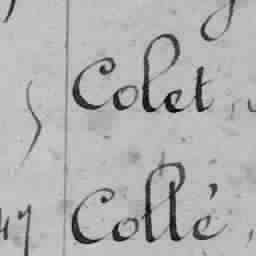 Colet
Collé